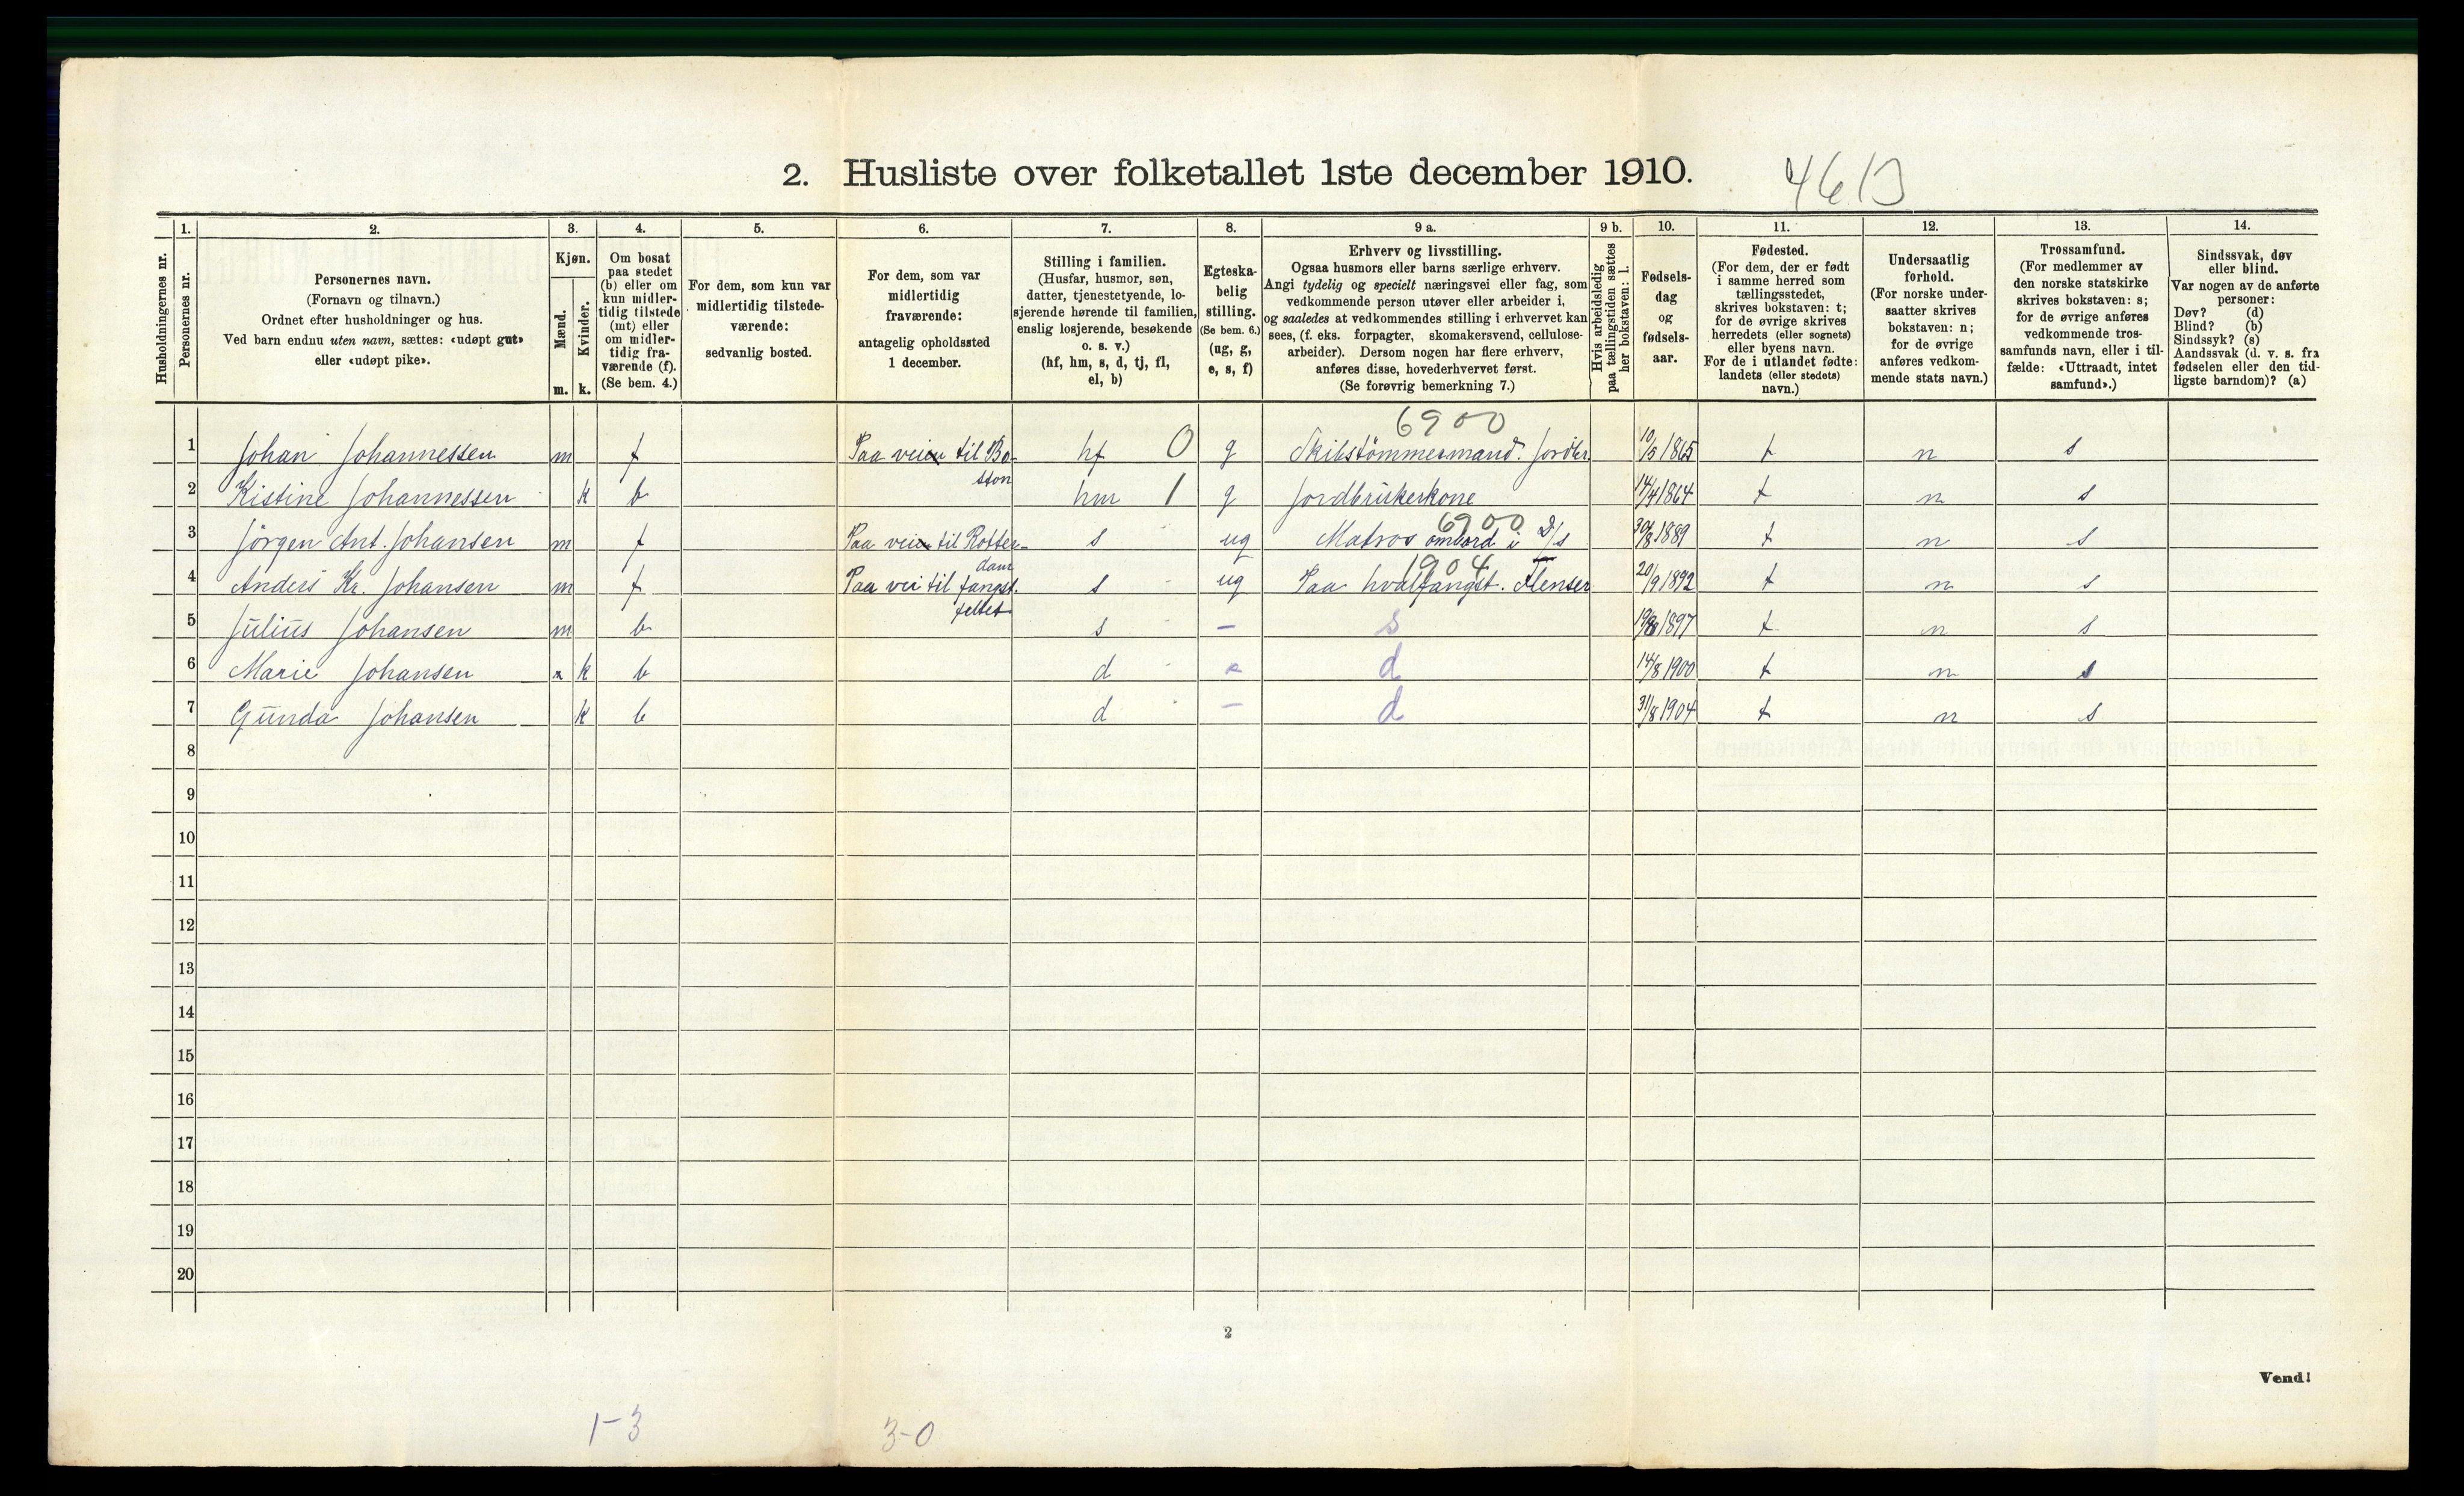 2. Husliste over folketallet 1ste december 1910.
Husholdningernes nr.
1.
Personernes nr.
2.
Personernes navn.
(Fornavn og tilnavn.)
Ordnet efter husholdninger og hus.
Ved barn endnu uten navn, sættes: «udøpt gut»
eller «udøpt pike».
3.
Kjøn.
Mænd.
Kvinder.
m. k.
4.
Om bosat
paa stedet
(b) eller om
kun midler-
tidig tilstede
(mt) eller
om midler-
tidig fra-
værende (f).
(Se bem. 4.)
5.
For dem, som kun var
midlertidig tilstede-
værende:
sedvanlig bosted.
6.
For dem, som var
midlertidig
fraværende:
antagelig opholdssted
1 december.
7.
Stilling i familien.
(Husfar, husmor, søn,
datter, tjenestetyende, lo-
sjerende hørende til familien,
enslig losjerende, besøkende
o. s. v.)
(hf, hm, s, d, tj, fl,
el, b)
8.
Egteska-
belig
stilling.
(Se bem. 6.)
(ug, g,
e, s, f)
9 a.
Erhverv og livsstilling.
Ogsaa husmors eller barns særlige erhverv.
Angi tydelig og specielt næringsvei eller fag, som
vedkommende person utøver eller arbeider i,
og saaledes at vedkommendes stilling i erhvervet kan
sees, (f. eks. forpagter, skomakersvend, cellulose-
arbeider). Dersom nogen har flere erhverv,
anføres disse, hovederhvervet først.
(Se forøvrig bemerkning 7.)
9 b.
Hvis arbeidsledig
paa tællingstiden sættes
her bokstaven: l.
10.
Fødsels-
dag
og
fødsels-
aar.
11.
Fødested.
(For dem, der er født
i samme herred som
tællingsstedet,
skrives bokstaven: t;
for de øvrige skrives
herredets (eller sognets)
eller byens navn.
For de i utlandet fødte:
landets (eller stedets)
navn.)
12.
Undersaatlig
forhold.
(For norske under-
saatter skrives
bokstaven: n;
for de øvrige
anføres vedkom-
mende stats navn.)
13.
Trossamfund.
(For medlemmer av
den norske statskirke
skrives bokstaven: s;
for de øvrige anføres
vedkommende tros-
samfunds navn, eller i til-
fælde: «Uttraadt, intet
samfund».)
14.
Sindssvak, døv
eller blind.
Var nogen av de anførte
personer:
Døv? (d)
Blind? (b)
Sindssyk? (s)
Aandssvak (d. v. s. fra
fødselen eller den tid-
ligste barndom)? (a)
6900
1 Johan Johannessen m f Paa veien til Bo- hf 0 g Skibstömmermand. Jordbr. 10/5 1865 t n s
ston
2 Kistine Johannessen k b hm 1 g Jordbrukerkone 14/4 1864 t n s
6900
3 Jörgen Ant. Johansen m f Paa veien til Rotter- s ug Matros ombord i D/s 30/8 1889 t n s
dam 1904
4 Anders Kr. Johansen m f Paa vei til fangst. s ug Paa hvalfangst. Flenser 20/9 1892 t n s
feltet
5 Julius Johansen m b s – s 1897 t n s
6 Marie Johansen k b d d 14/8 1900 t n s
7 Gunda Johansen k b d – d 31/8 1904 t n s
8
9
10
11
12
13
14
15
16
17
18
19
20
2
Vend!
1-3 3-0